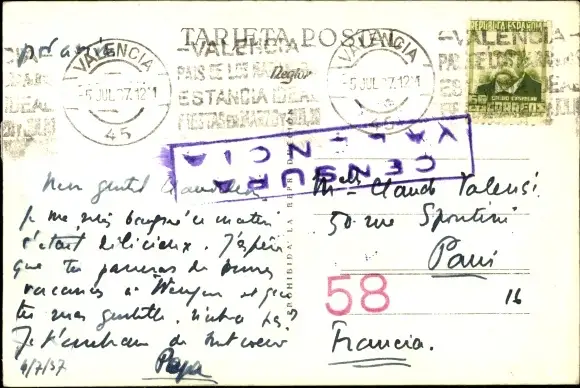 par avion
TARJETA POSTAL
VALENCIA
5 JUL 37.12M
45
VALENCIA
PAIS DE LOS
ESTANCIA IDEAL
VALENCIA
5 JUL 37.12M
45
VALENCIA
REPUBLICA ESPAÑOLA
CENSURA
VALENCIA
PROHIBIDA LA
Mon gentil
Je me suis baigné ce matin
c'était délicieux. J'espère
que tu passeras de bonnes
vacances à Wengen et que
tu seras gentille, n'est-ce pas?
Je t'embrasse de tout coeur
Papa
4/7/37
Mlle Claude Valensi
50 rue Spontini
Paris
16
58
Francia.